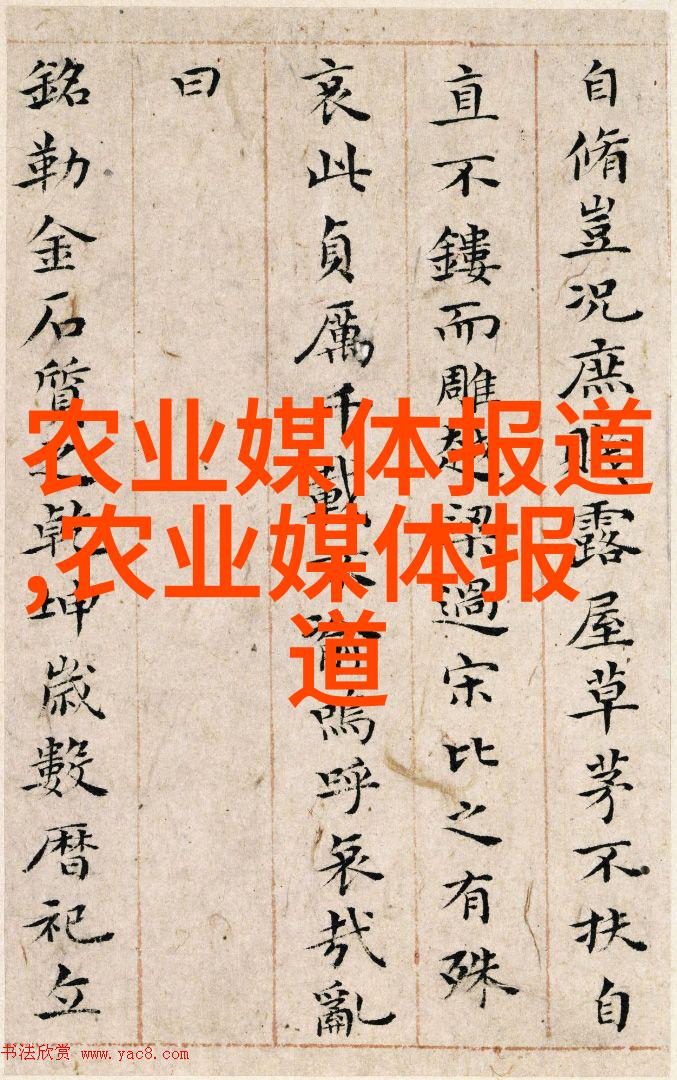 自脩豈況庶露屋草茅不扶自
直不鏤而雕越梁過宋比之有殊
哀此貞厲千載嗚呼哀哉亂
曰
銘勒金石質之乾坤歲數暦祀立
农业媒体报道
,农业媒体报
道
书法欣赏 www.yac8.com